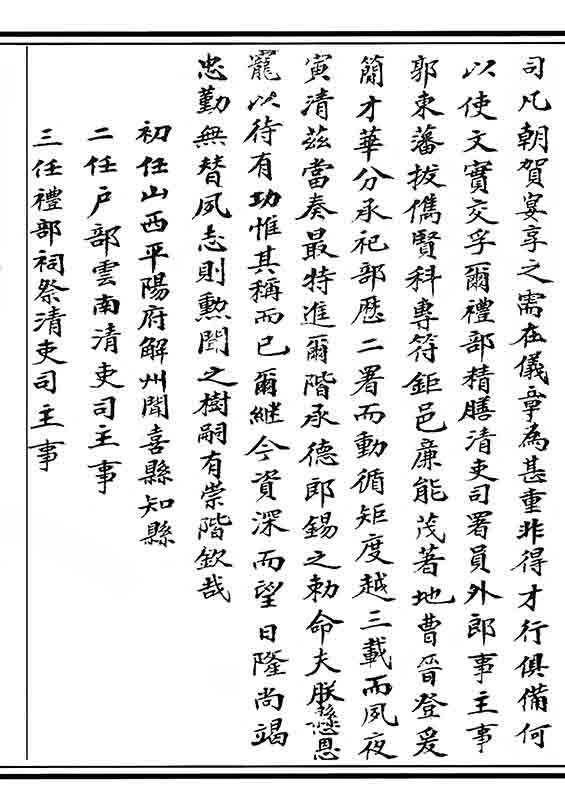 司凡朝賀宴享之需在儀章為甚重非得才行俱備何
以使文實交孚爾禮部精膳清吏司署員外郎事主事
郭東藩拔儁賢科專符鉅邑廉能茂著地曹晉登爰
簡才華分承祀部歷二署而動循矩度越三載而夙夜
寅清茲當奏最特進爾階承德郎錫之勅命夫朕懸懋恩
寵以待有功惟其稱而已爾繼今資深而望日隆尚竭
忠勤無替夙志則勲閥之樹嗣有崇階欽哉
初任山西平陽府解州聞喜縣知縣
二任戶部雲南清吏司主事
三任禮部祠祭清吏司主事